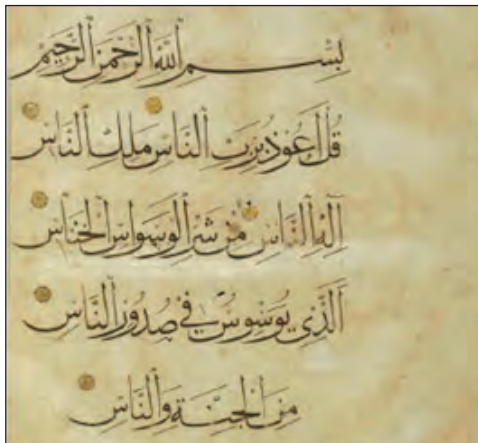 بِسْمِ اللَّهِ الرَّحْمَنِ الرَّحِيمِ
قُلْ أَعُوذُ بِرَبِّ النَّاسِ مَلِكِ النَّاسِ
إِلَهِ النَّاسِ مِنْ شَرِّ الْوَسْوَاسِ الْخَنَّاسِ
الَّذِي يُوَسْوِسُ فِي صُدُورِ النَّاسِ
مِنَ الْجِنَّةِ وَالنَّاسِ